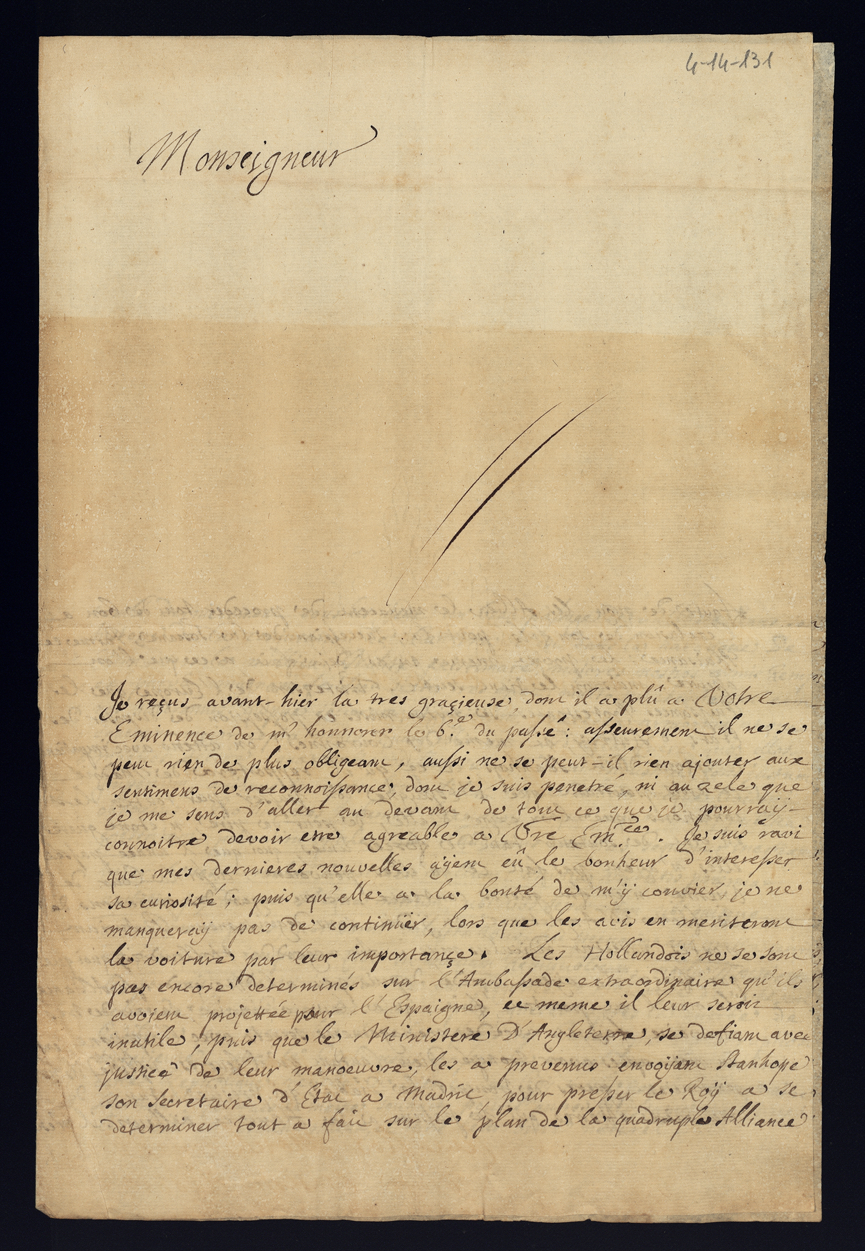 4-14-131
Monseigneur
Je reçus avant-hier la tres graçieuse, dont il a plû a Votre
Eminence de m' honnorer le 6.e du passé: asseurement il ne se
peut rien de plus obligeant, aussi ne se peut-il rien ajouter aux
sentimens de reconnoissance, dont je suis penetré, ni au zele que
je me sens d'aller au devant de tout ce que je pourray
connoitre devoir etre agreable a Vre Em.ce. Je suis ravi
que mes dernieres nouvelles ayent eû le bonheur d'interesser
sa curiosité; puis qu'elle a la bonté de m'ij convier, je ne
manqueraij pas de continuër, lors que les avis en meriteront
la voiture par leur importançe. Les Hollandois ne se sont
pas encore determinés sur l'Ambassade extraordinaire qu'ils
avojent projettée pour l'Espaigne, et meme il leur seroit
inutile, puis que le Ministere D'Angleterre, se defiant avec
justice de leur manoeuvre, les a prevenus envoijant Stanhope
son Secretaire d'Etat a Madrit, pour presser le Roij a se
determiner tout a fait sur le plan de la quadruple Alliance